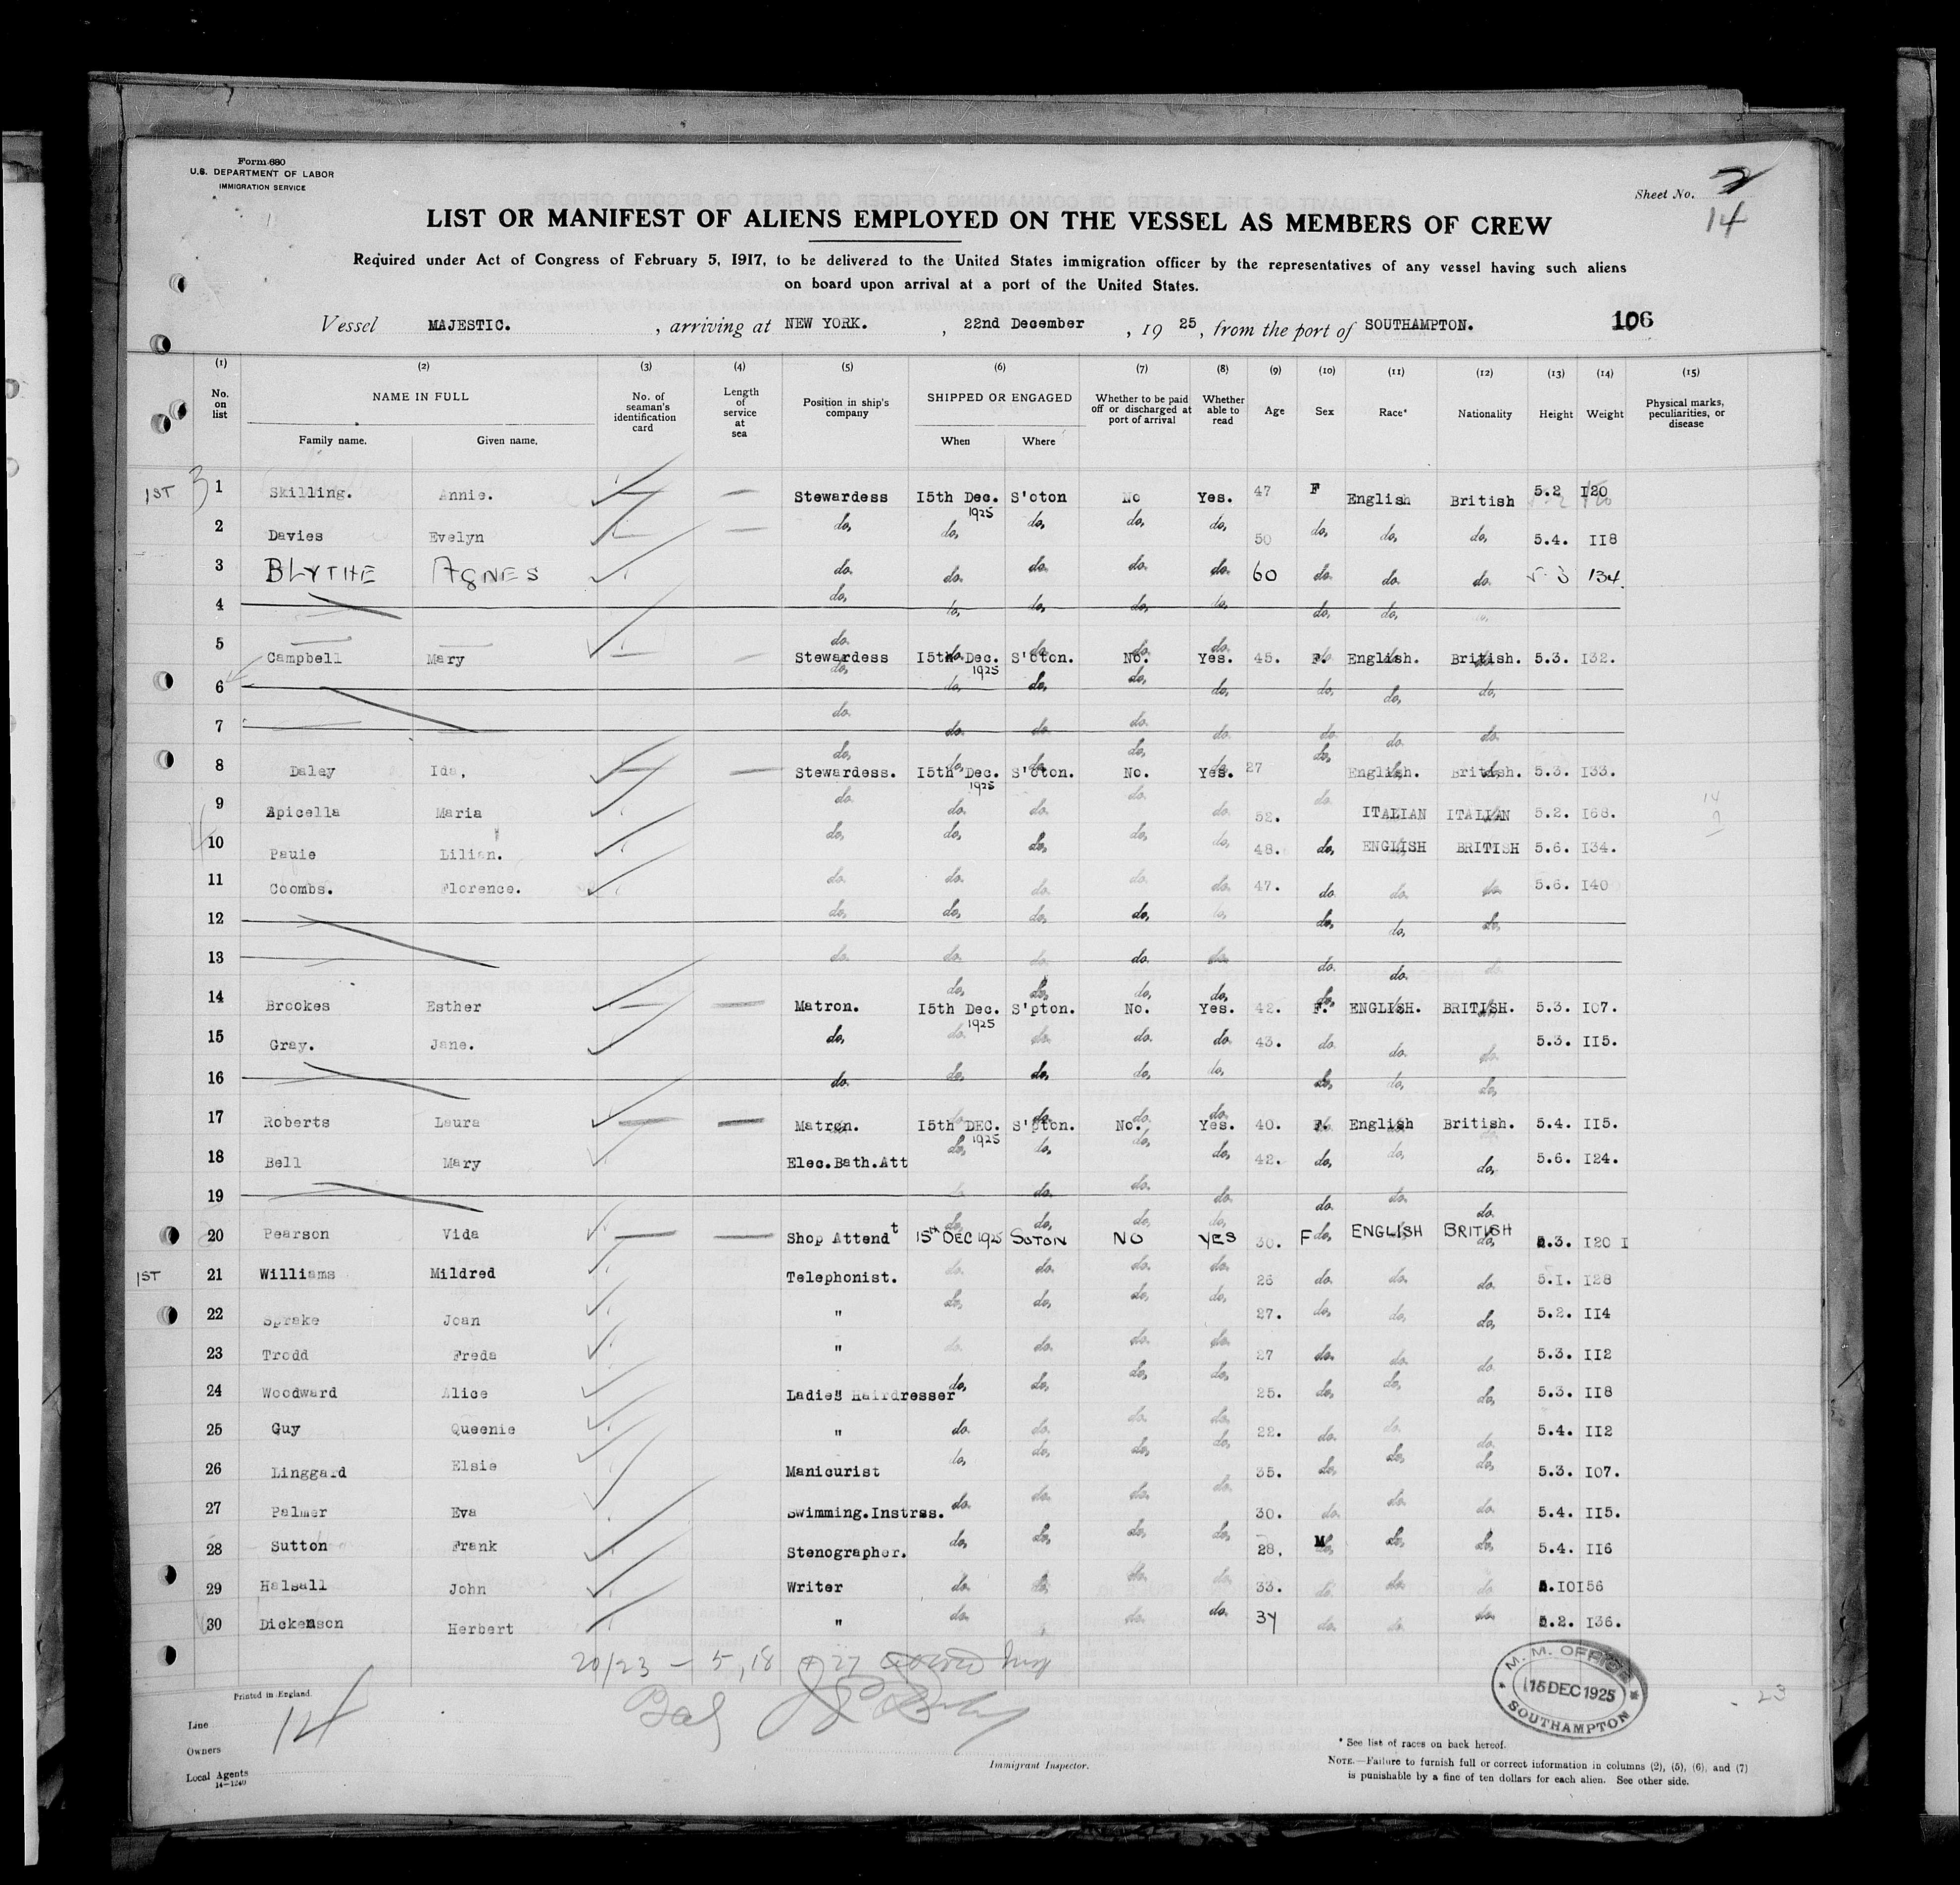 Form 680
U.S. DEPARTMENT OF LABOR
IMMIGRATION SERVICE
Sheet No. 2
14
LIST OR MANIFEST OF ALIENS EMPLOYED ON THE VESSEL AS MEMBERS OF CREW
Required under Act of Congress of February 5, 1917, to be delivered to the United States immigration officer by the representatives of any vessel having such aliens
on board upon arrival at a port of the United States.
Vessel MAJESTIC. , arriving at NEW YORK. , 22nd December , 19 25, from the port of SOUTHAMPTON. 106
(1) (2) (3) (4) (5) (6) (7) (8) (9) (10) (11) (12) (13) (14) (15)
No. on list NAME IN FULL Family name. Given name. No. of seaman's identification card Length of service at sea Position in ship's company SHIPPED OR ENGAGED When Where Whether to be paid off or discharged at port of arrival Whether able to read Age Sex Race* Nationality Height Weight Physical marks, peculiarities, or disease
1ST 3 1 Skilling. Annie. Stewardess 15th Dec. 1925 S'oton No Yes. 47 F English British 5.2 I20
2 Davies Evelyn do, do, do, do, do, 50 do, do, do, 5.4. II8
3 BLYTHE AGNES do. do. do. do. do. 60 do. do. do. 134.
4 do, do, do, do, do, do, do,
5 Campbell Mary do. Stewardess 15th Dec. 1925 S'oton. No. Yes. 45. F. English. British. 5.3. I32.
6 do, do, do, do, do, do, do, do,
7 do. do. do. do. do. do. do. do.
8 Daley Ida, do, Stewardess. 15th Dec. 1925 S'oton. No. Yes. 27 do, English. British. 5.3. I33.
9 Apicella Maria do. do. do. do. do. 52. do. ITALIAN ITALIAN 5.2. I68.
10 Pauie Lilian. do, do, do, do, do, 48. do, ENGLISH BRITISH 5.6. I34.
11 Coombs. Florence. do. do. do. do. do. 47. do. do. do. 5.6. I40
12 do, do, do, do, do, do, do, do,
13 do. do. do. do. do. do. do. do.
14 Brookes Esther Matron. 15th Dec. 1925 S'pton. No. Yes. 42. F. ENGLISH. BRITISH. 5.3. I07.
15 Gray. Jane. do, do. do. do. do. 43. do. do. do. 5.3. II5.
16 do. do, do, do, do, do, do, do,
17 Roberts Laura Matron. 15th DEC. 1925 S'pton. No. Yes. 40. F. English British. 5.4. II5.
18 Bell Mary Elec.Bath.Att do, do, do, do, 42. do, do, do, 5.6. I24.
19 do. do. do. do. do. do. do.
20 Pearson Vida Shop Attendt 15th DEC 1925 SOTON NO YES 30. F do, ENGLISH BRITISH 5.3. I20 I
1ST 21 Williams Mildred Telephonist. do. do. do. do. 26 do. do. do. 5.I. I28
22 Sprake Joan " do, do, do, do, 27. do, do, do, 5.2. II4
23 Trodd Freda " do. do. do. do. 27 do. do. do. 5.3. II2
24 Woodward Alice Ladies Hairdresser do, do, do, do, 25. do, do, do, 5.3. II8
25 Guy Queenie " do. do. do. do. 22. do. do. do. 5.4. II2
26 Linggard Elsie Manicurist do, do, do, do, 35. do, do, do, 5.3. I07.
27 Palmer Eva Swimming.Instrss. do. do. do. do. 30. do. do. do. 5.4. II5.
28 Sutton Frank Stenographer. do, do, do, do, 28, M do, do, 5.4. II6
29 Halsall John Writer do. do. do. do. 33. do. do. do. 5.I0 I56
30 Dickenson Herbert " do. do. do. 34 do. do. do. 5.2. I36.
20/23 - 5, 18 + 27
M. M. OFFICE
15 DEC 1925
SOUTHAMPTON
23
Printed in England.
Line 14
Owners
Local Agents
14—1240
Immigrant Inspector.
* See list of races on back hereof.
NOTE.—Failure to furnish full or correct information in columns (2), (5), (6), and (7)
is punishable by a fine of ten dollars for each alien. See other side.